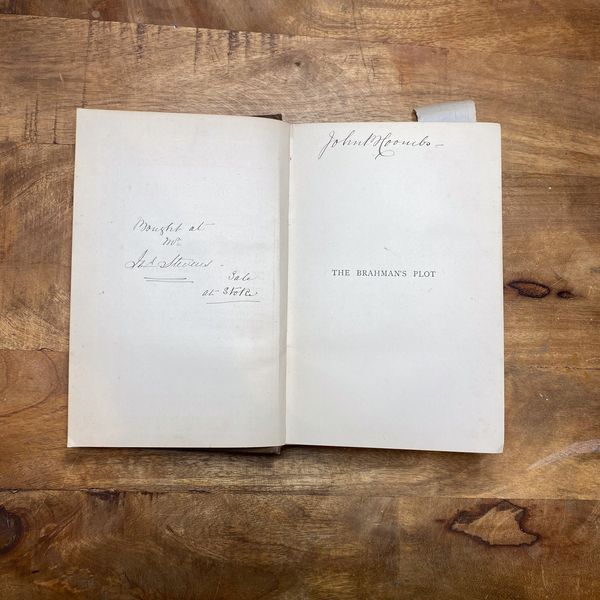 Bought at
Mr
Jas Stevens
Sale
at Stoke
John B Coombs
THE BRAHMAN'S PLOT